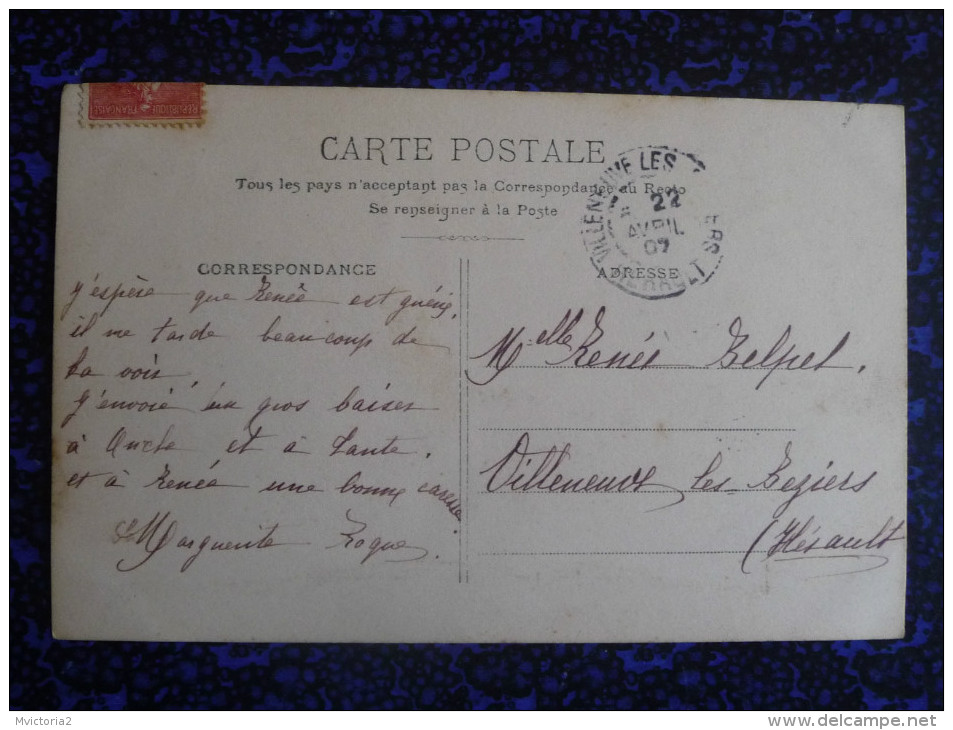 RÉPUBLIQUE FRANÇAISE
CARTE POSTALE
Tous les pays n'acceptant pas la Correspondance au Recto
Se renseigner à la Poste
VILLENEUVE LES
22
AVRIL
07
HERAULT
CORRESPONDANCE
ADRESSE
J'espère que Renée est guérie,
il me tarde beaucoup de
la voir.
J'envoie un gros baiser
à Oncle et à Tante.
et à Renée une bonne caresse.
Marguerite Roque
Melle Renée
Villeneuve les Beziers
(Hérault
Mvictoria2
http://www.delcampe.net